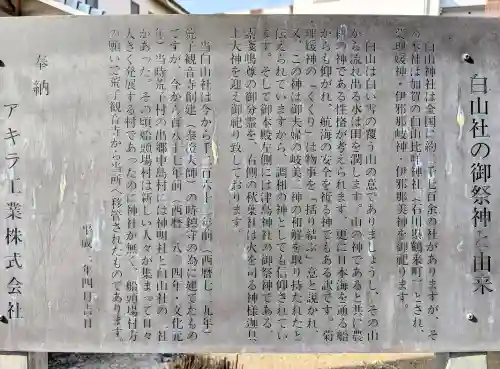 白山社の御祭神と由来
白山神社は全国に約二千七百余の社がありますが、そ
の本社は加賀の白山比咩神社（石川県鶴来町）とされ、
菊理媛神・伊邪那岐神・伊邪那美神を御祀ります。
白山は白い雪の覆う山の意でありましょうし、その山
から流れ出る水は田を潤します。山の神であると共に農
耕の神である性格が考えられます。更に日本海を通る船
からも仰がれ、航海の安全を祈る神でもある訳です。菊
理媛神の「くくり」は物事を「括り結ぶ」意と説かれ、
又、この神は御夫婦の岐美二神の和解を取り持たれたと
伝えられていますから、調和の神としても信仰されてい
ます。そして御本殿左側には津島神社の御祭神である、
素戔嗚尊の御分霊を、右側の秋葉社は火を司る神様迦具
土大神を迎え御祀り致しております。
当白山社は今から千二百六十二年前（西暦七二九年）
荒子観音寺創建（泰澄大師）の時鎮守の為に建てたもの
ですが、今から百八十七年前（西暦一八〇四年・文化元
年）当時荒子村の出郷中島村には神明社と白山社の二社
があった。その頃船頭場村は新しい人々が集まって日々
大きく発展する村であったのに神社が無く、船頭場村方
の願いで荒子観音寺から当所へ移管されたものであります。
平成三年四月吉日
奉納
アキラ工業株式会社